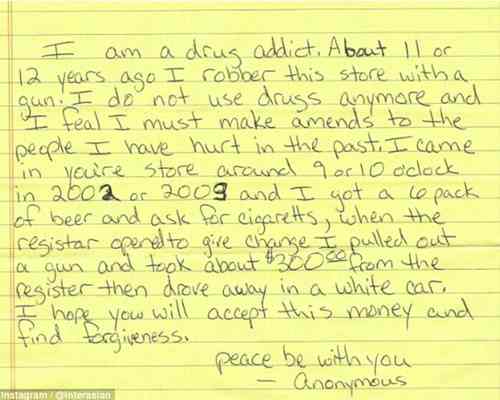 I am a drug addict. About 11 or
12 years ago I robber this store with a
gun. I do not use drugs anymore and
I feal I must make amends to the
people I have hurt in the past. I came
in you're store around 9 or 10 oclock
in 2002 or 2003 and I got a 6 pack
of beer and ask for cigaretts, when the
resistar opened to give change I pulled out
a gun and took about $300.00 from the
register then drove away in a white car.
I hope you will accept this money and
find forgiveness.
peace be with you
— Anonymous
Instagram / @interasian